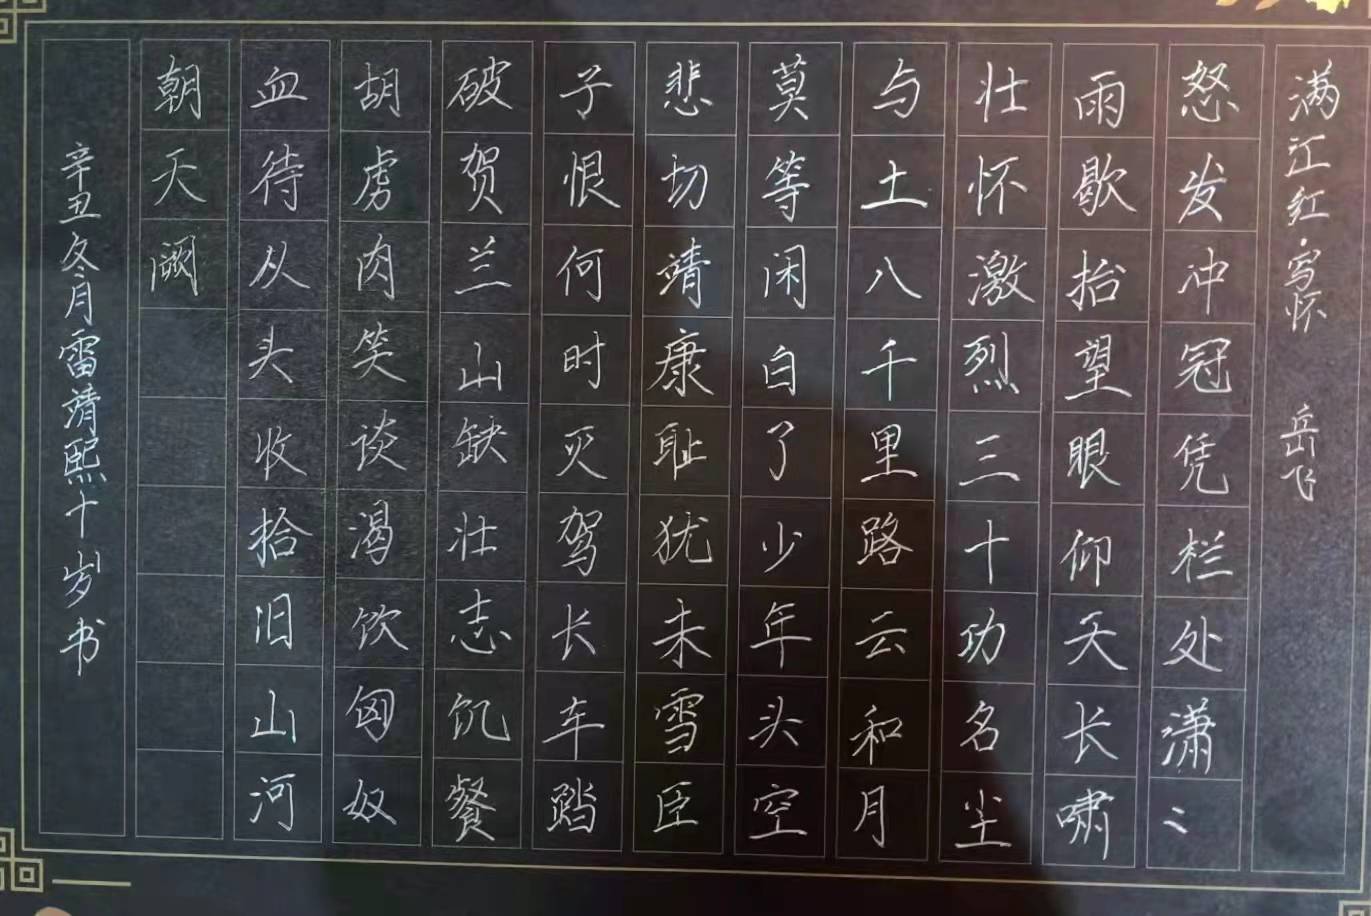 满江红·写怀 岳飞
怒发冲冠凭栏处潇〻
雨歇抬望眼仰天长啸
壮怀激烈三十功名尘
与土八千里路云和月
莫等闲白了少年头空
悲切靖康耻犹未雪臣
子恨何时灭驾长车踏
破贺兰山缺壮志饥餐
胡虏肉笑谈渴饮匈奴
血待从头收拾旧山河
朝天阙
辛丑冬月雷靖熙十岁书